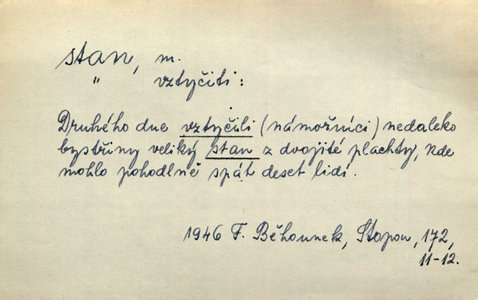 stan, m.
" vztyčiti:
Druhého dne vztyčili (námořníci) nedaleko
bystřiny veliký stan z dvojité plachty, kde
mohlo pohodlně spát deset lidí.
1946 F. Běhounek, Stopou, 172,
11-12.